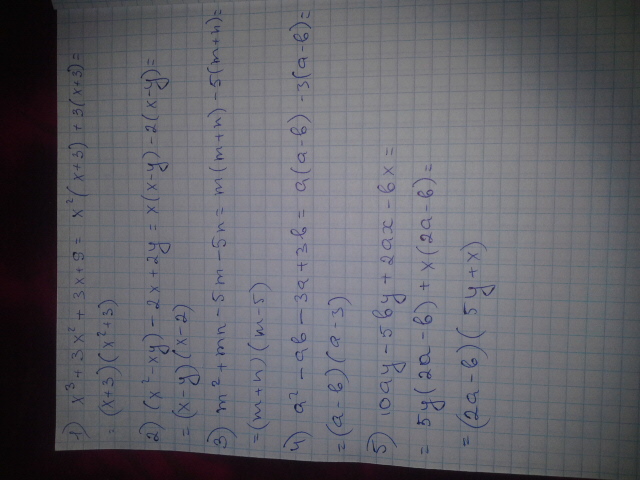 1) x³ + 3x² + 3x + 9 = x²(x+3) + 3(x+3) =
= (x+3)(x²+3)
2) (x² - xy) - 2x + 2y = x(x-y) - 2(x-y) =
= (x-y)(x-2)
3) m² + mn - 5m - 5n = m(m+n) - 5(m+n) =
= (m+n)(m-5)
4) a² - ab - 3a + 3b = a(a-b) - 3(a-b) =
= (a-b)(a-3)
5) 10ay - 5by + 2ax - bx =
= 5y(2a-b) + x(2a-b) =
= (2a-b)(5y+x)